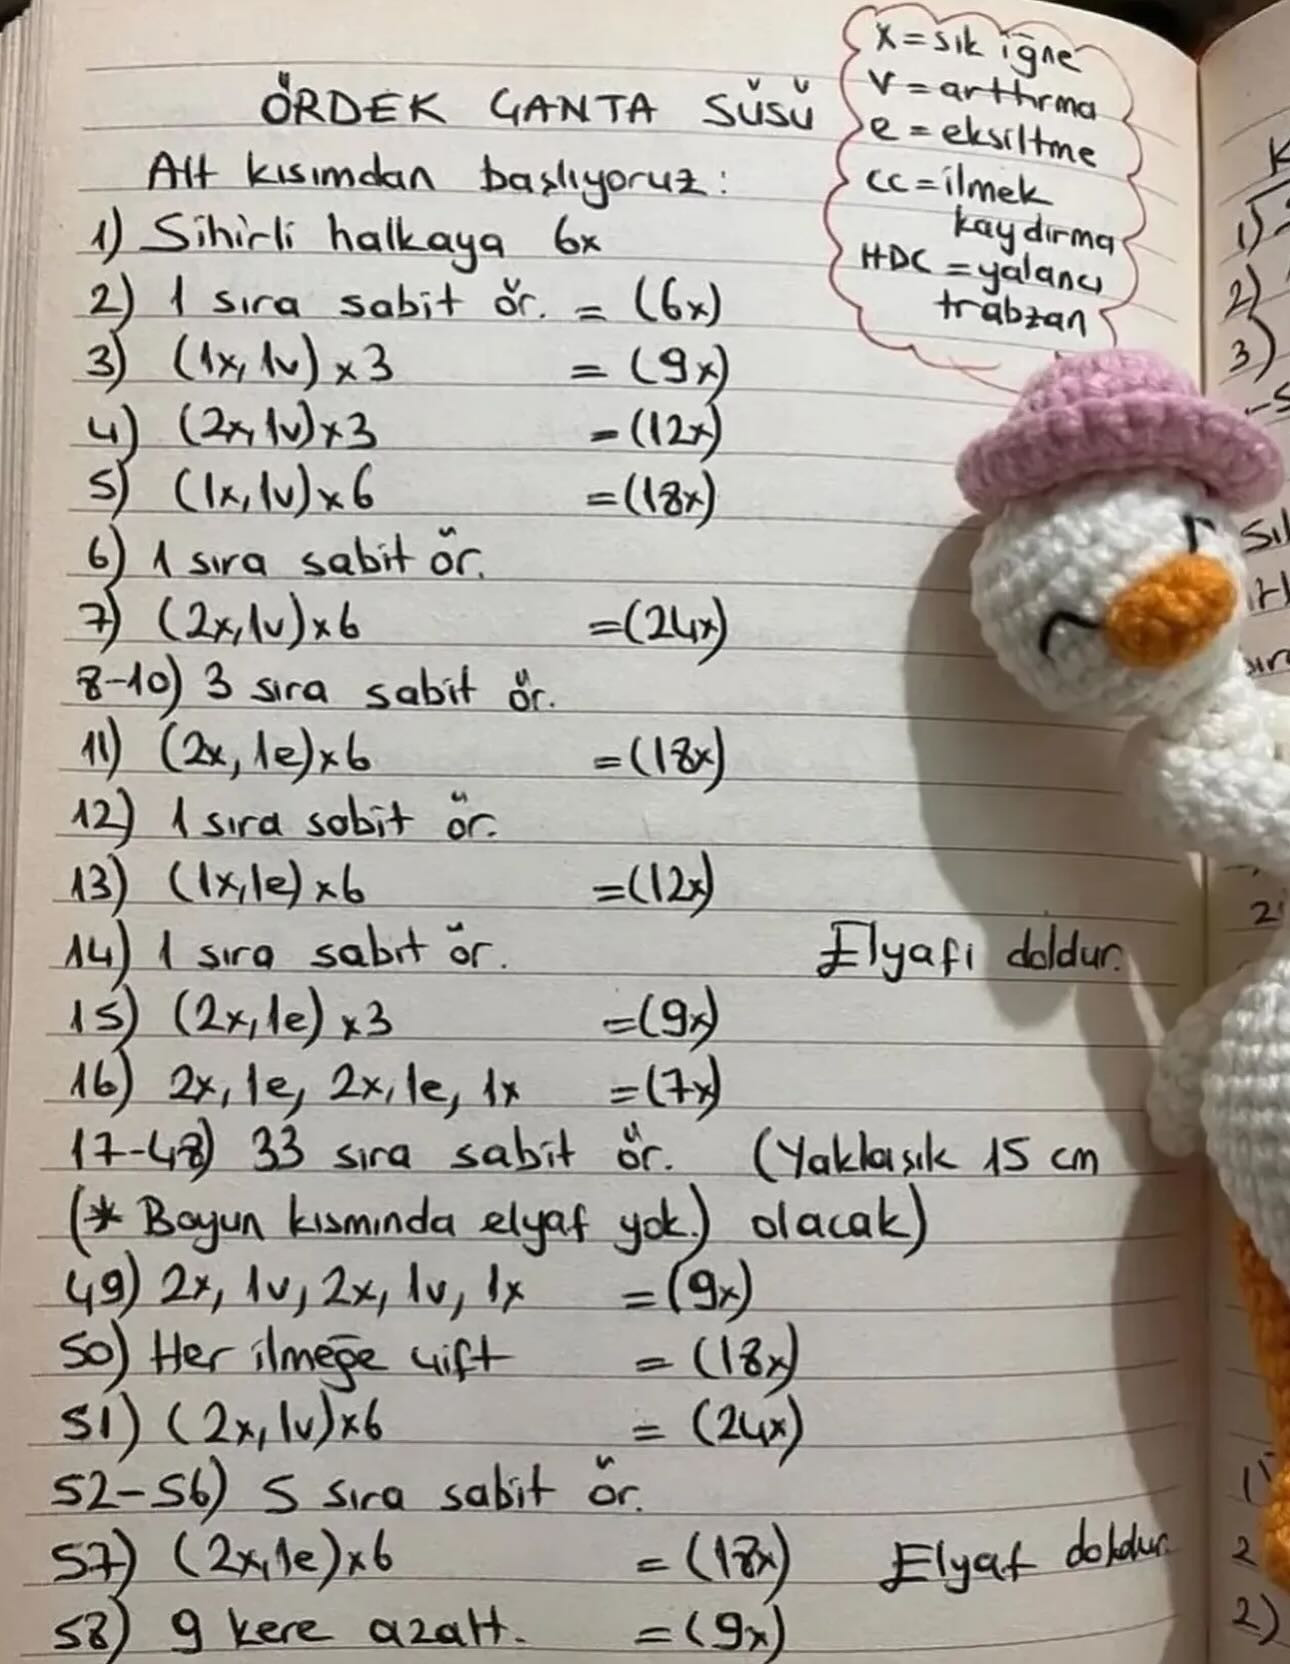 x = sık iğne
v = arttırma
e = eksiltme
cc = ilmek
kaydırma
HDC = yalancı
trabzan
ÖRDEK ÇANTA SÜSÜ
Alt kısımdan başlıyoruz:
1) Sihirli halkaya 6x
2) 1 sıra sabit ör. = (6x)
3) (1x, 1v) x 3 = (9x)
4) (2x, 1v) x 3 = (12x)
5) (1x, 1v) x 6 = (18x)
6) 1 sıra sabit ör.
7) (2x, 1v) x 6 = (24x)
8-10) 3 sıra sabit ör.
11) (2x, 1e) x 6 = (18x)
12) 1 sıra sabit ör.
13) (1x, 1e) x 6 = (12x)
14) 1 sıra sabit ör. Elyafi doldur.
15) (2x, 1e) x 3 = (9x)
16) 2x, 1e, 2x, 1e, 1x = (7x)
17-48) 33 sıra sabit ör. (Yaklaşık 15 cm
(* Boyun kısmında elyaf yok.) olacak)
49) 2x, 1v, 2x, 1v, 1x = (9x)
50) Her ilmeğe çift = (18x)
51) (2x, 1v) x 6 = (24x)
52-56) 5 sıra sabit ör.
57) (2x, 1e) x 6 = (18x) Elyaf doldur.
58) 9 kere azalt. = (9x)
K
1)
2)
3)
2
2)